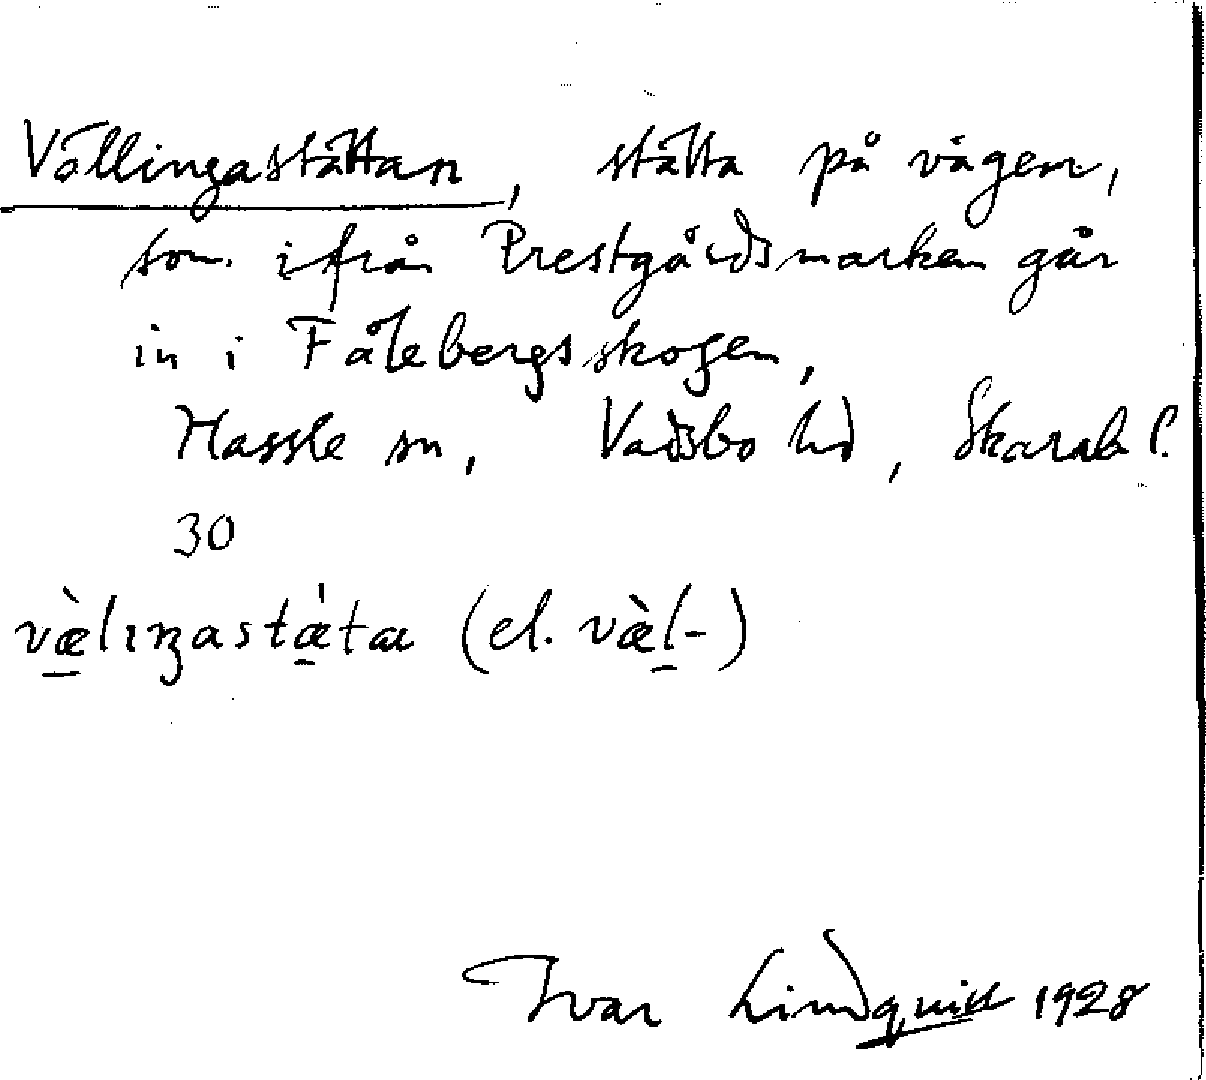 Vällingastättan, stätta på vägen,
som ifrån Prestgårdsmarken går
in i Fålebergsskogen,
Hassle sn, Vadsbo hd, Skarab l.
30
væ̀lıŋastæ̍ta (el. væ̀l-)
Ivar Lindquist 1928